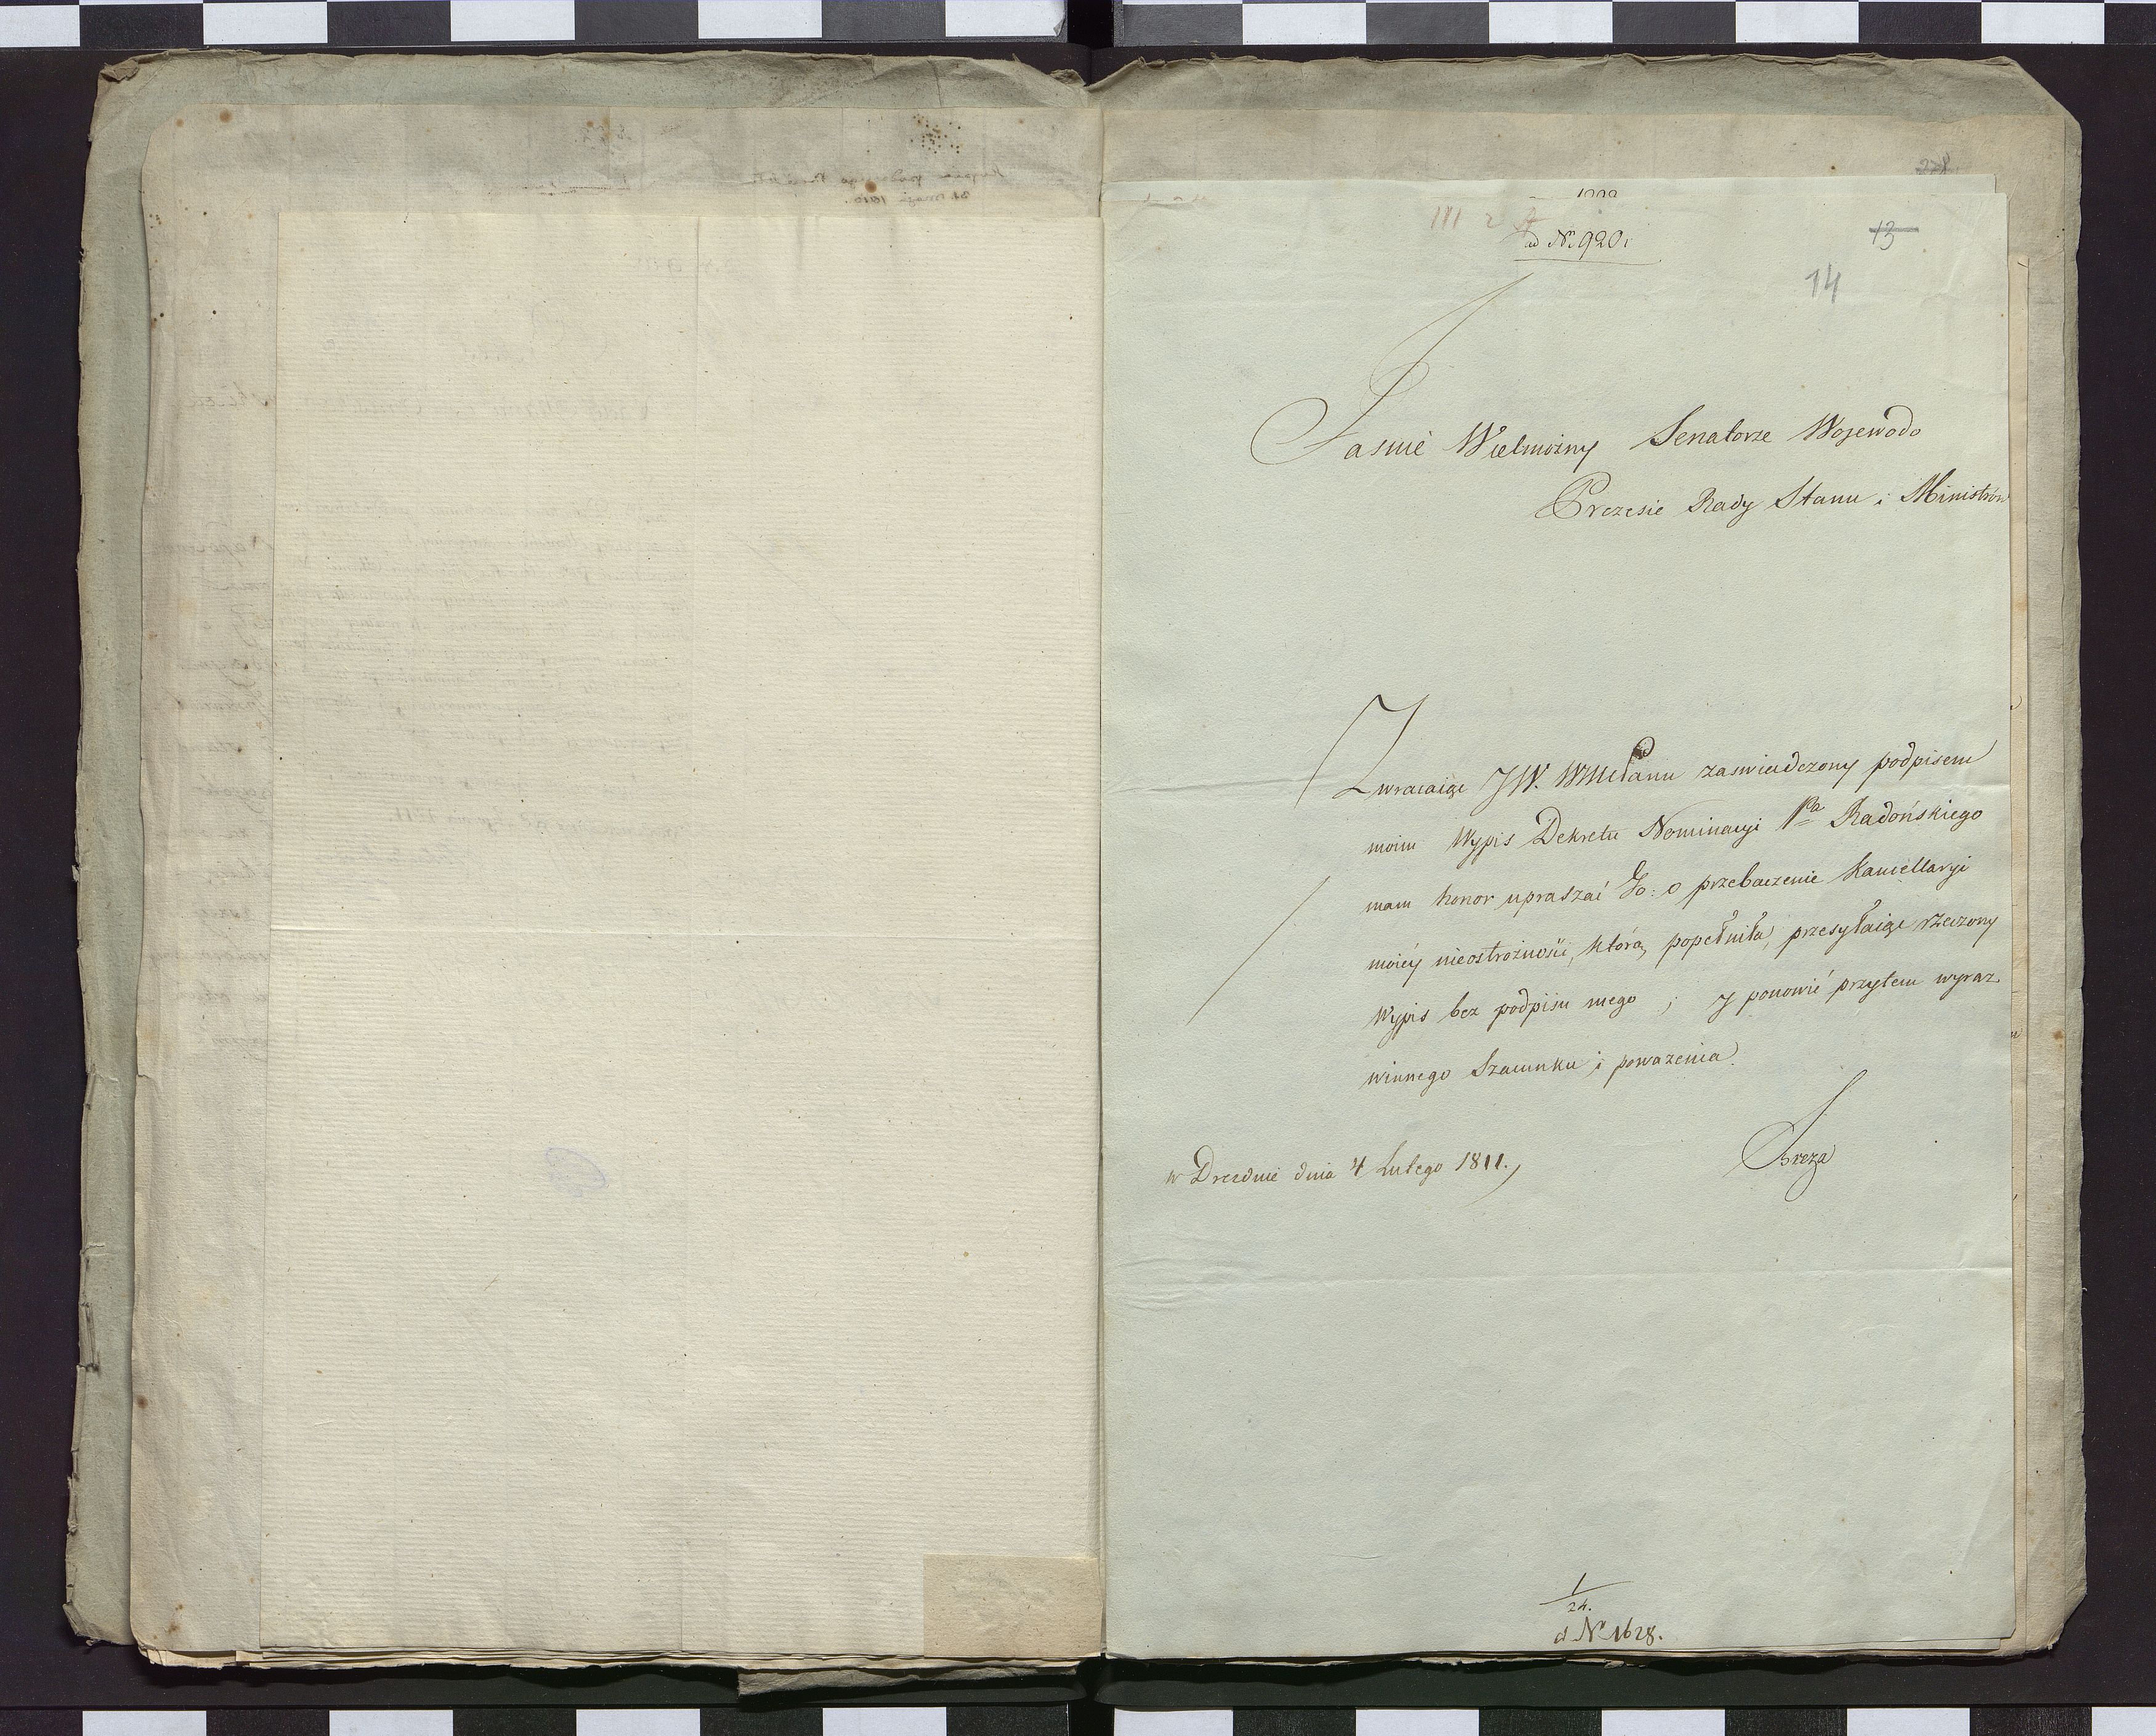 278
ad Nr 920.
13
14
Jaśnie Wielmożny Senatorze Wojewodo
Prezesie Rady Stanu i Ministrów
Zwracaiąc JW. WMPanu zaswiadczony podpisem
moim Wypis Dekretu Nominacyi Pa Radońskiego
mam honor upraszać Go: o przebaczenie Kancellaryi
moiéy nieostrożności, którą popełniła, przesyłaiąc rzeczony
Wypis bez podpisu mego ; y ponowić przytem wyraz
winnego Szacunku i poważenia.
w Dreźnie dnia 4 Lutego 1811.
Breza
1/24.
d Nr 1628.